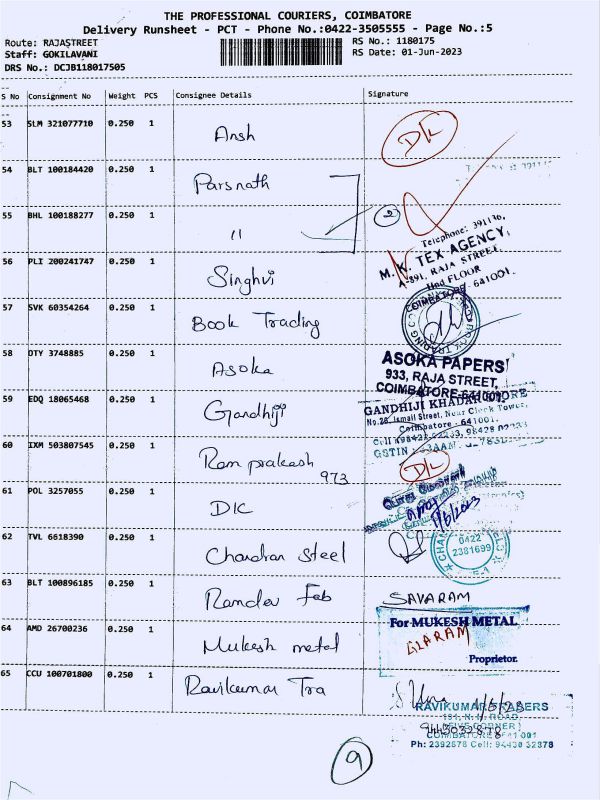 THE PROFESSIONAL COURIERS, COIMBATORE
Delivery Runsheet - PCT - Phone No.:0422-3505555 - Page No.:5
Route: RAJASTREET
RS No.: 1180175
Staff: GOKILAVANI
RS Date: 01-Jun-2023
DRS No.: DCJB118017505
S No Consignment No Weight PCS Consignee Details Signature
53 SLM 321077710 0.250 1 Ansh DK
54 BLT 100184420 0.250 1 Parsnath
55 BHL 100188277 0.250 1 " 2
Telephone: 391136,
M. K. TEX AGENCY,
A-891, RAJA STREET,
IInd FLOOR
COIMBATORE - 641001.
56 PLI 200241747 0.250 1 Singhvi
57 SVK 60354264 0.250 1 Book Trading
58 OTY 3748885 0.250 1 Asoka
ASOKA PAPERS
933, RAJA STREET,
COIMBATORE-641001.
59 EDQ 18065468 0.250 1 Gandhiji
GANDHIJI KHADAR STORE
No.26, Ismail Street, Near Clock Tower,
Coimbatore - 641001.
60 IXM 503807545 0.250 1 Ram prakash 973 DK
61 POL 3257055 0.250 1 DK
1/6/2023
62 TVL 6618390 0.250 1 Chandran Steel
0422
2381699
63 BLT 100896185 0.250 1 Ramdev Fab SAVARAM
64 AMD 26700236 0.250 1 Mukesh metal
For MUKESH METAL
GLARAM
Proprietor.
65 CCU 100701800 0.250 1 Ravikumar Tra
1/6/23
RAVIKUMAR TRADERS
COIMBATORE-641 001
9443032878
Ph: 2392878 Cell: 94430 32878
9